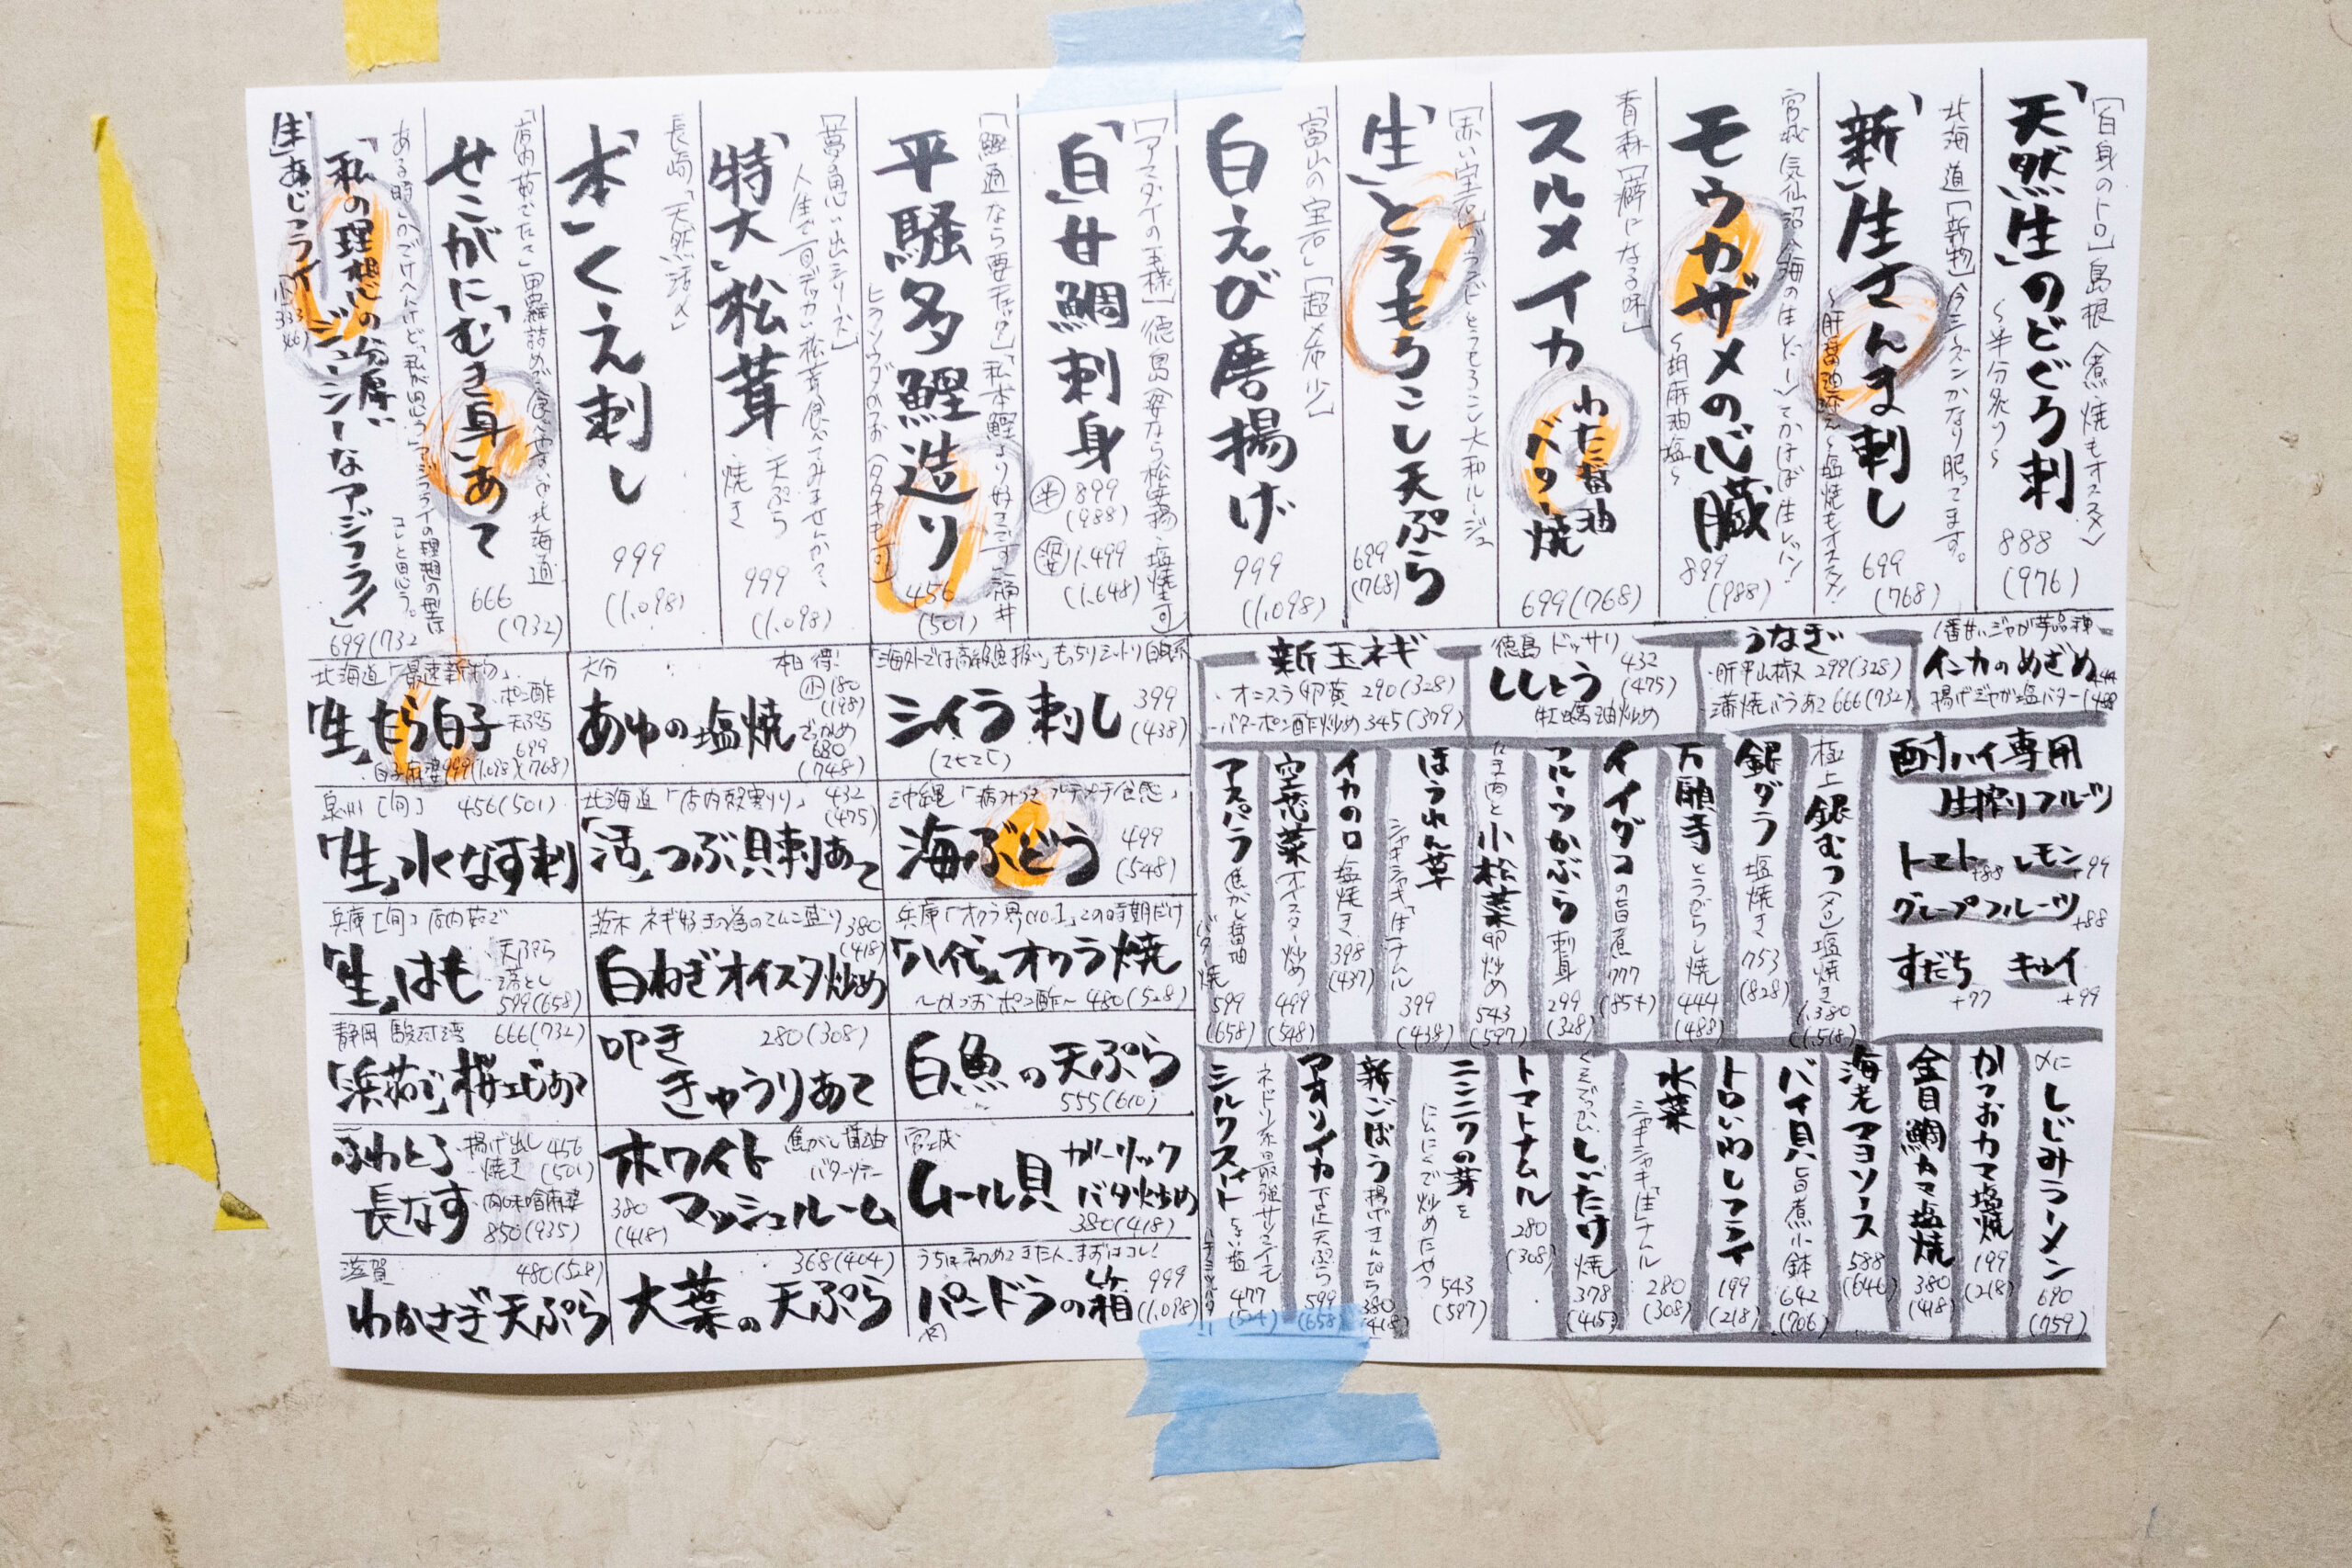 [白身のトロ]島根〈煮焼もオススメ〉
「天然生」のどぐろ刺
〜半分炙り〜
888
(976)
北海道[新物]今シーズンかなり肥ってます。
「新」生さんま刺し
〜塩焼もオススメ!
699
(768)
宮城 気仙沼
モウカザメの心臓
〜胡麻油塩〜
899
(988)
青森「癖になる味」
スルメイカ
わた醤油
バター焼
699(768)
「生」とうもろこし天ぷら
699
(768)
富山の宝石」「超〆希少」
白えび唐揚げ
999
(1,098)
「白」甘鯛刺身
半 899
(988)
姿 1,499
(1,648)
平騒多鰹造り
456
(501)
[夢の思い出シリーズ]
人生で一回デッカい松茸食べてみませんか?
「特大」松茸
天ぷら
焼き
999
(1,098)
長崎「天然活〆」
「本」くえ刺し
999
(1,098)
「店内茹でたて」甲羅詰めで食べやすい北海道
せこがに「むき身」あて
666
(732)
「私の理想の分厚い
ジューシーなアジフライ」
699(732
「生」あじフライ
新玉ネギ
・オニスラ卵黄 290(328)
・バターポン酢炒め 345(379)
徳島 ドッサリ
ししとう
432
(475)
牡蠣油炒め
うなぎ
・肝串山椒 299(328)
・蒲焼バラあて 666(732)
1番甘いジャガ芋品種
インカのめざめ
揚げジャが塩バター
北海道「最速新物」
「生」たら白子
・ポン酢
・天ぷら
699
(768)
白子麻婆 999(1,098)
大分
本日得!
あゆの塩焼
小 180
(198)
でっかめ
680
(748)
シイラ刺し
399
(438)
泉州[旬] 456(501)
「生」水なす刺
北海道「店内殻割り」 432
(475)
「活」つぶ貝刺あて
沖縄「病みつきプチプチ食感」
海ぶどう
499
(548)
兵庫[旬]店内茹で
「生」はも
・天ぷら
・落とし
599(658)
茨木 ネギ好きの為のてんこ盛り 380
(418)
白ねぎオイスター炒め
兵庫「オクラ界No.1」この時期だけ
「八代」オクラ焼
〜かつおポン酢〜 480(528)
静岡 駿河湾 666(732)
「浜茹で」桜エビあて
280(308)
叩き
きゅうりあて
白魚の天ぷら
555(610)
ふわとろ
長なす
・揚げ出し 456
・焼き (501)
・肉味噌麻婆
850(935)
ホワイト
マッシュルーム
焦がし醤油
バターソテー
380
(418)
宮城
ムール貝
ガーリック
バター炒め
380(418)
滋賀 480(528)
わかさぎ天ぷら
368(404)
大葉の天ぷら
うちは初めてきた人、まずはコレ!
パンドラの箱
999
(1,098)
酎ハイ専用
生搾りフルーツ
トマト +88 レモン +99
グレープフルーツ +88
すだち +77 キウイ +99
極上銀むつ(メロ)塩焼き 1,380
(1,518)
銀ダラ 塩焼き 753
(828)
万願寺とうがらし焼 444
(488)
イイダコの旨煮 777
(854)
フルーツかぶら刺身 299
(328)
たまごと小松菜卵炒め 543
(597)
ほうれん草
シャキシャキ「生」ナムル 399
(438)
イカの口 塩焼き 398
(437)
空芯菜 オイスター炒め 499
(548)
アスパラ 焦がし醤油
バター焼 599
(658)
〆に しじみラーメン 690
(759)
かつおカマ塩焼 199
(218)
金目鯛カマ塩焼 380
(418)
海老マヨソース 588
(646)
バイ貝旨煮小鉢 642
(706)
トロいわしフライ 199
(218)
水菜
シャキシャキ「生」ナムル 280
(308)
くそでっかいしいたけ焼 378
(415)
トマトナムル 280
(308)
ニンニクの芽を
にんにくで炒めたやつ 543
(597)
新ごぼう 揚げきんぴら 380
(418)
アオリイカ 下足天ぷら 599
(658)
シルクスイート 477
(524)